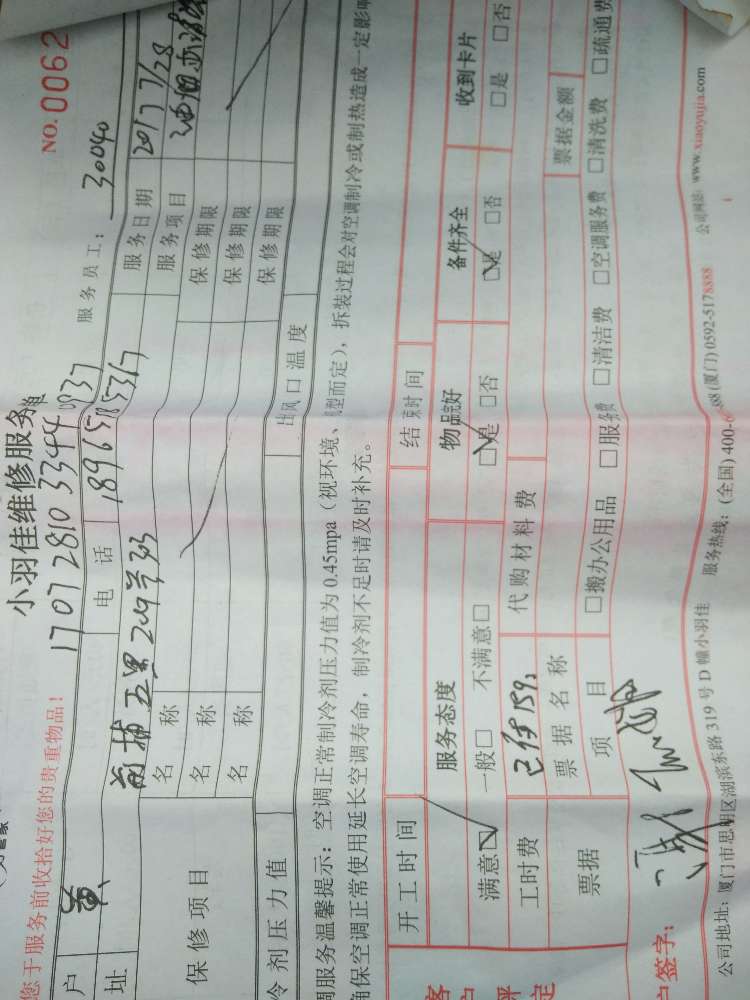 小羽佳维修服务单
NO.0062
您于服务前收拾好您的贵重物品!
1707 2810 3344 0937
服务员工: 30040
户 黄 电话 189 6585317 服务日期 2017 7/28
址 前埔五里209号 服务项目 油烟
保修项目
名称 保修期限
名称 保修期限
名称 保修期限
冷剂压力值 出风口温度
调服务温馨提示: 空调正常制冷剂压力值为0.45mpa (视环境、机型而定), 拆装过程会对空调制冷或制热造成一定影响
确保空调正常使用延长空调寿命, 制冷剂不足时请及时补充。
开工时间 结束时间
服务态度 物品完好 备件齐全 收到卡片
满意☑ 一般□ 不满意□ ☑是 □否 ☑是 □否 □是 □否
工时费 已付159 代购材料费
票据 票据名称 票据金额
项目 □搬办公用品 □服务费 □清洁费 □空调服务费 □清洗费 □疏通费
户签字:
公司地址: 厦门市思明区湖滨东路319号D幢小羽佳 服务热线: (全国) 400-6 88 (厦门) 0592-5178888 公司网址: www.xiaoyujia.com